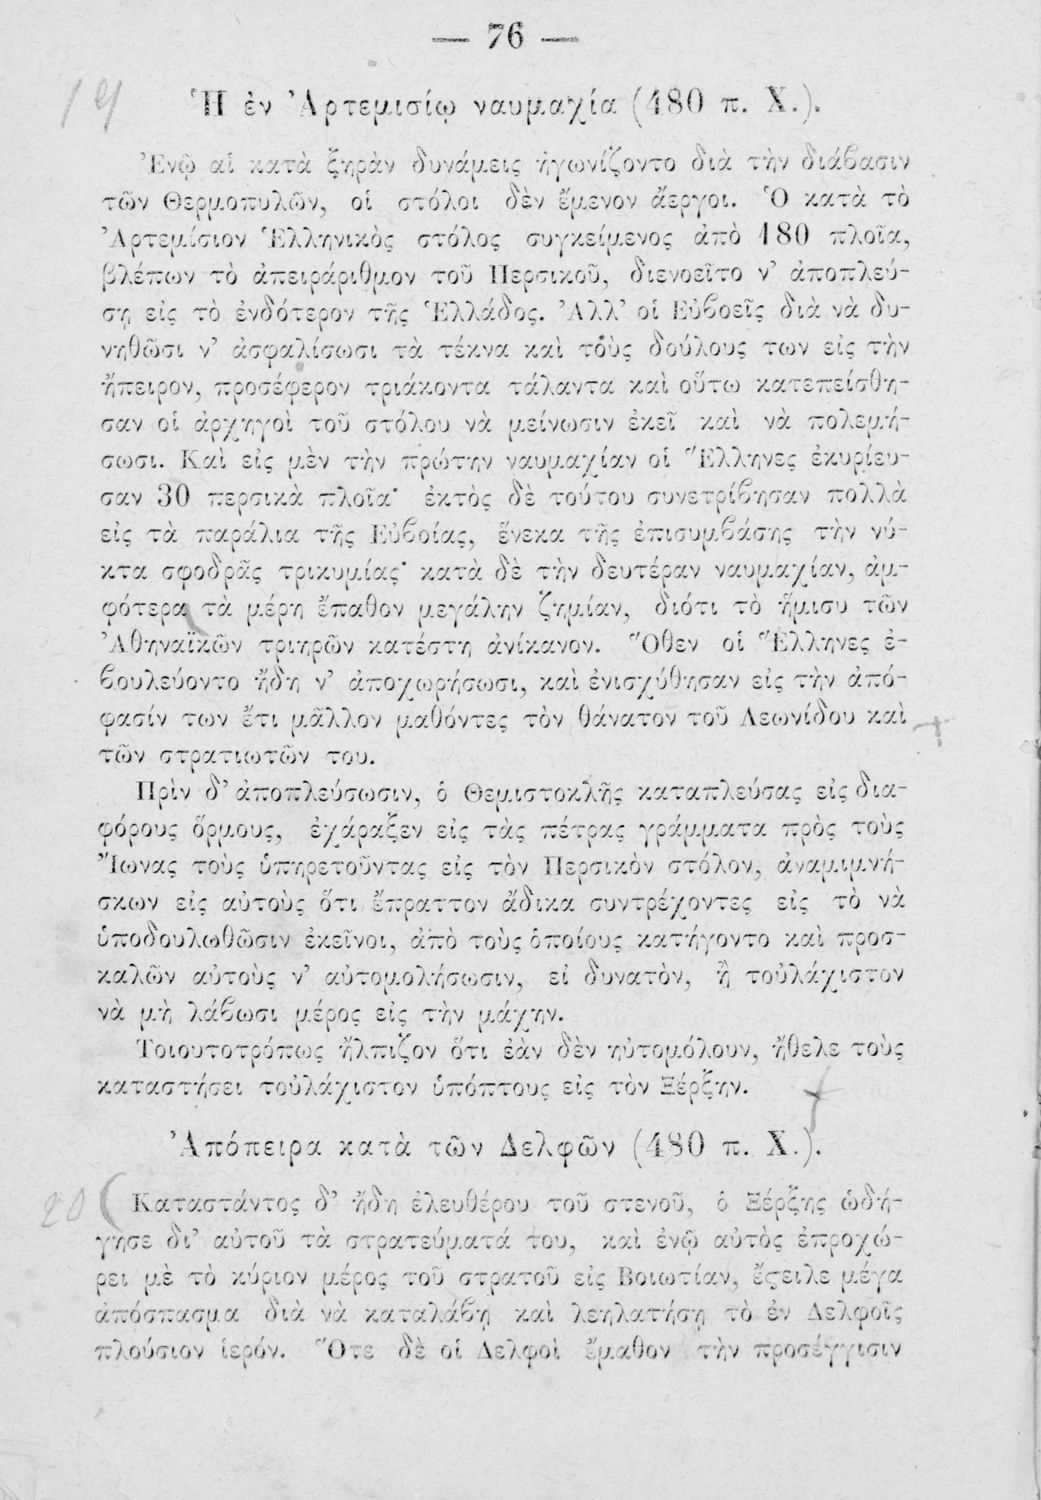 — 76 —
19
Ἡ ἐν Ἀρτεμισίῳ ναυμαχία (480 π. Χ.).
Ἐνῷ αἱ κατὰ ξηρὰν δυνάμεις ἠγωνίζοντο διὰ τὴν διάβασιν
τῶν Θερμοπυλῶν, οἱ στόλοι δὲν ἔμενον ἄεργοι. Ὁ κατὰ τὸ
Ἀρτεμίσιον Ἑλληνικὸς στόλος συγκείμενος ἀπὸ 180 πλοῖα,
βλέπων τὸ ἀπειράριθμον τοῦ Περσικοῦ, διενοεῖτο ν’ ἀποπλεύ-
σῃ εἰς τὸ ἐνδότερον τῆς Ἑλλάδος. Ἀλλ’ οἱ Εὐβοεῖς διὰ νὰ δυ-
νηθῶσι ν’ ἀσφαλίσωσι τὰ τέκνα καὶ τοὺς δούλους των εἰς τὴν
ἤπειρον, προσέφερον τριάκοντα τάλαντα καὶ οὕτω κατεπείσθη-
σαν οἱ ἀρχηγοὶ τοῦ στόλου νὰ μείνωσιν ἐκεῖ καὶ νὰ πολεμή-
σωσι. Καὶ εἰς μὲν τὴν πρώτην ναυμαχίαν οἱ Ἕλληνες ἐκυρίευ-
σαν 30 περσικὰ πλοῖα· ἐκτὸς δὲ τούτου συνετρίβησαν πολλὰ
εἰς τὰ παράλια τῆς Εὐβοίας, ἕνεκα τῆς ἐπισυμβάσης τὴν νύ-
κτα σφοδρᾶς τρικυμίας· κατὰ δὲ τὴν δευτέραν ναυμαχίαν, ἀμ-
φότερα τὰ μέρη ἔπαθον μεγάλην ζημίαν, διότι τὸ ἥμισυ τῶν
Ἀθηναϊκῶν τριηρῶν κατέστη ἀνίκανον. Ὅθεν οἱ Ἕλληνες ἐ-
βουλεύοντο ἤδη ν’ ἀποχωρήσωσι, καὶ ἐνισχύθησαν εἰς τὴν ἀπό-
φασίν των ἔτι μᾶλλον μαθόντες τὸν θάνατον τοῦ Λεωνίδου καὶ
τῶν στρατιωτῶν του.
Πρὶν δ’ ἀποπλεύσωσιν, ὁ Θεμιστοκλῆς καταπλεύσας εἰς δια-
φόρους ὅρμους, ἐχάραξεν εἰς τὰς πέτρας γράμματα πρὸς τοὺς
Ἴωνας τοὺς ὑπηρετοῦντας εἰς τὸν Περσικὸν στόλον, ἀναμιμνή-
σκων εἰς αὐτοὺς ὅτι ἔπραττον ἄδικα συντρέχοντες εἰς τὸ νὰ
ὑποδουλωθῶσιν ἐκεῖνοι, ἀπὸ τοὺς ὁποίους κατήγοντο καὶ προσ-
καλῶν αὐτοὺς ν’ αὐτομολήσωσιν, εἰ δυνατὸν, ἢ τοὐλάχιστον
νὰ μὴ λάβωσι μέρος εἰς τὴν μάχην.
Τοιουτοτρόπως ἤλπιζον ὅτι ἐὰν δὲν ηὐτομόλουν, ἤθελε τοὺς
καταστήσει τοὐλάχιστον ὑπόπτους εἰς τὸν Ξέρξην.
Ἀπόπειρα κατὰ τῶν Δελφῶν (480 π. Χ.).
20
Καταστάντος δ’ ἤδη ἐλευθέρου τοῦ στενοῦ, ὁ Ξέρξης ὡδή-
γησε δι’ αὐτοῦ τὰ στρατεύματά του, καὶ ἐνῷ αὐτὸς ἐπροχώ-
ρει μὲ τὸ κύριον μέρος τοῦ στρατοῦ εἰς Βοιωτίαν, ἔϛειλε μέγα
ἀπόσπασμα διὰ νὰ καταλάβῃ καὶ λεηλατήσῃ τὸ ἐν Δελφοῖς
πλούσιον ἱερόν. Ὅτε δὲ οἱ Δελφοὶ ἔμαθον τὴν προσέγγισιν